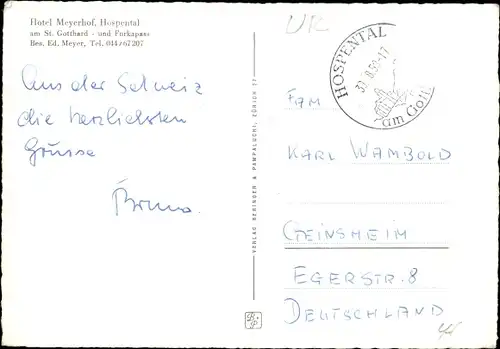 Hotel Meyerhof, Hospental
am St. Gotthard - und Furkapass
Bes. Ed. Meyer, Tel. 044/67207
Aus der Schweiz
die herzlichsten
Grüsse
Bruno.
VERLAG BERINGER & PAMPALUCHI, ZÜRICH 77
UR
HOSPENTAL
am Gott
FAM
KARL WAMBOLD
GEINSHEIM
EGERSTR. 8
DEUTSCHLAND